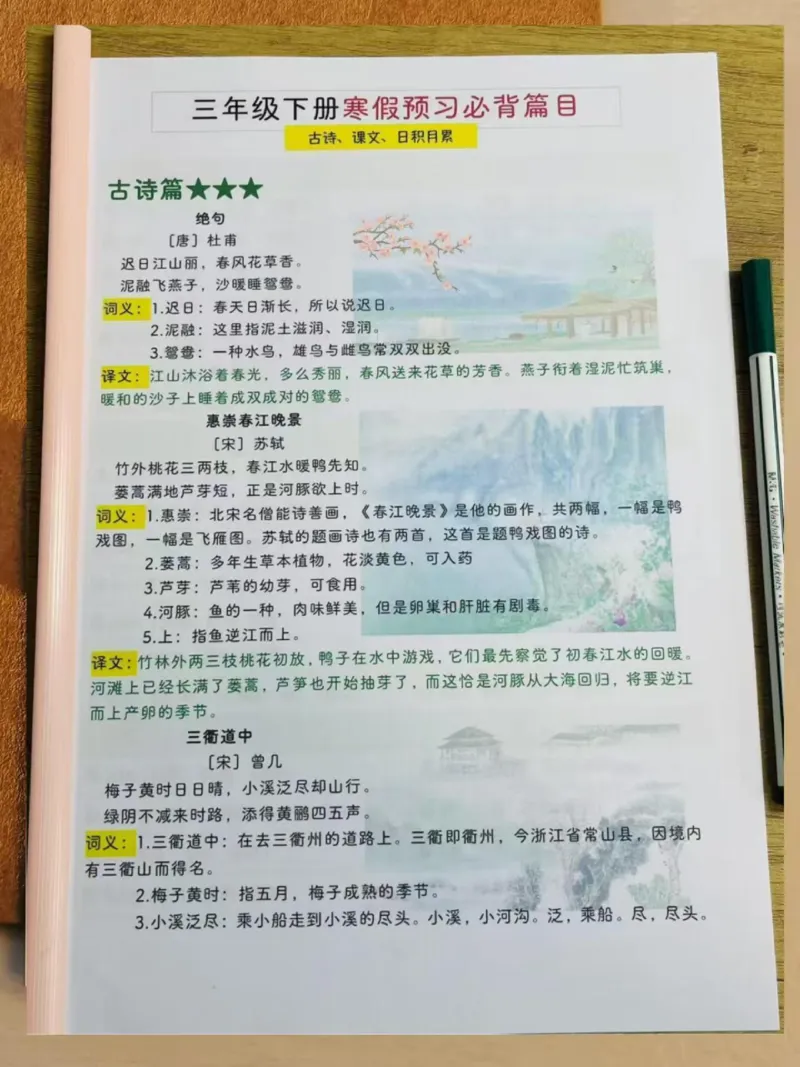 三年级下册寒假预习必背篇目
古诗、课文、日积月累
古诗篇★★★
绝句
［唐］杜甫
迟日江山丽，春风花草香。
泥融飞燕子，沙暖睡鸳鸯。
词义：1.迟日：春天日渐长，所以说迟日。
2.泥融：这里指泥土滋润、湿润。
3.鸳鸯：一种水鸟，雄鸟与雌鸟常双双出没。
译文：江山沐浴着春光，多么秀丽，春风送来花草的芳香。燕子衔着湿泥忙筑巢，
暖和的沙子上睡着成双成对的鸳鸯。
惠崇春江晚景
［宋］苏轼
竹外桃花三两枝，春江水暖鸭先知。
蒌蒿满地芦芽短，正是河豚欲上时。
词义：1.惠崇：北宋名僧能诗善画，《春江晚景》是他的画作，共两幅，一幅是鸭
戏图，一幅是飞雁图。苏轼的题画诗也有两首，这首是题鸭戏图的诗。
2.蒌蒿：多年生草本植物，花淡黄色，可入药
3.芦芽：芦苇的幼芽，可食用。
4.河豚：鱼的一种，肉味鲜美，但是卵巢和肝脏有剧毒。
5.上：指鱼逆江而上。
译文：竹林外两三枝桃花初放，鸭子在水中游戏，它们最先察觉了初春江水的回暖。
河滩上已经长满了蒌蒿，芦笋也开始抽芽了，而这恰是河豚从大海回归，将要逆江
而上产卵的季节。
三衢道中
［宋］曾几
梅子黄时日日晴，小溪泛尽却山行。
绿阴不减来时路，添得黄鹂四五声。
词义：1.三衢道中：在去三衢州的道路上。三衢即衢州，今浙江省常山县，因境内
有三衢山而得名。
2.梅子黄时：指五月，梅子成熟的季节。
3.小溪泛尽：乘小船走到小溪的尽头。小溪，小河沟。泛，乘船。尽，尽头。
M&G • Washable Markers •